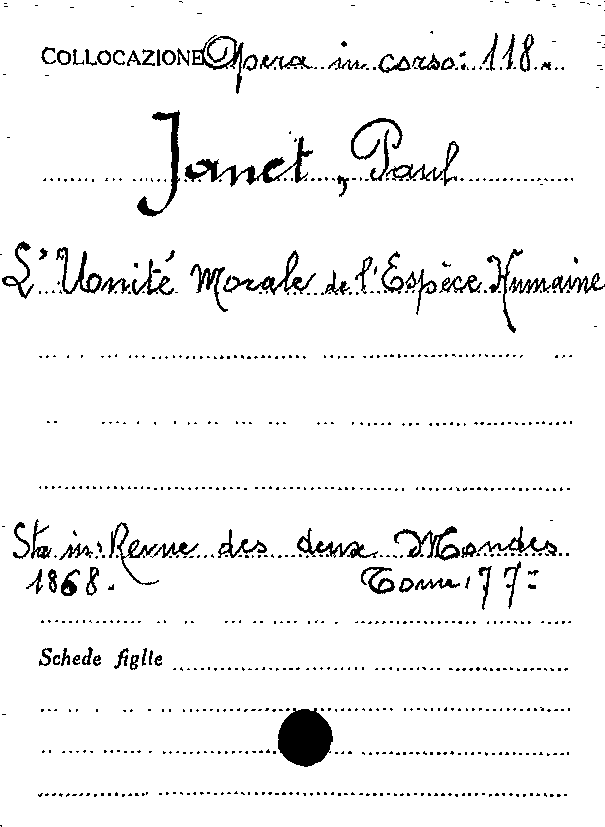 COLLOCAZIONE Opera in corso: 118.
Janet, Paul
L'Unité Morale de l'Espèce Humaine
Sta in: Revue des deux Mondes
1868. Tome 77=
Schede figlie